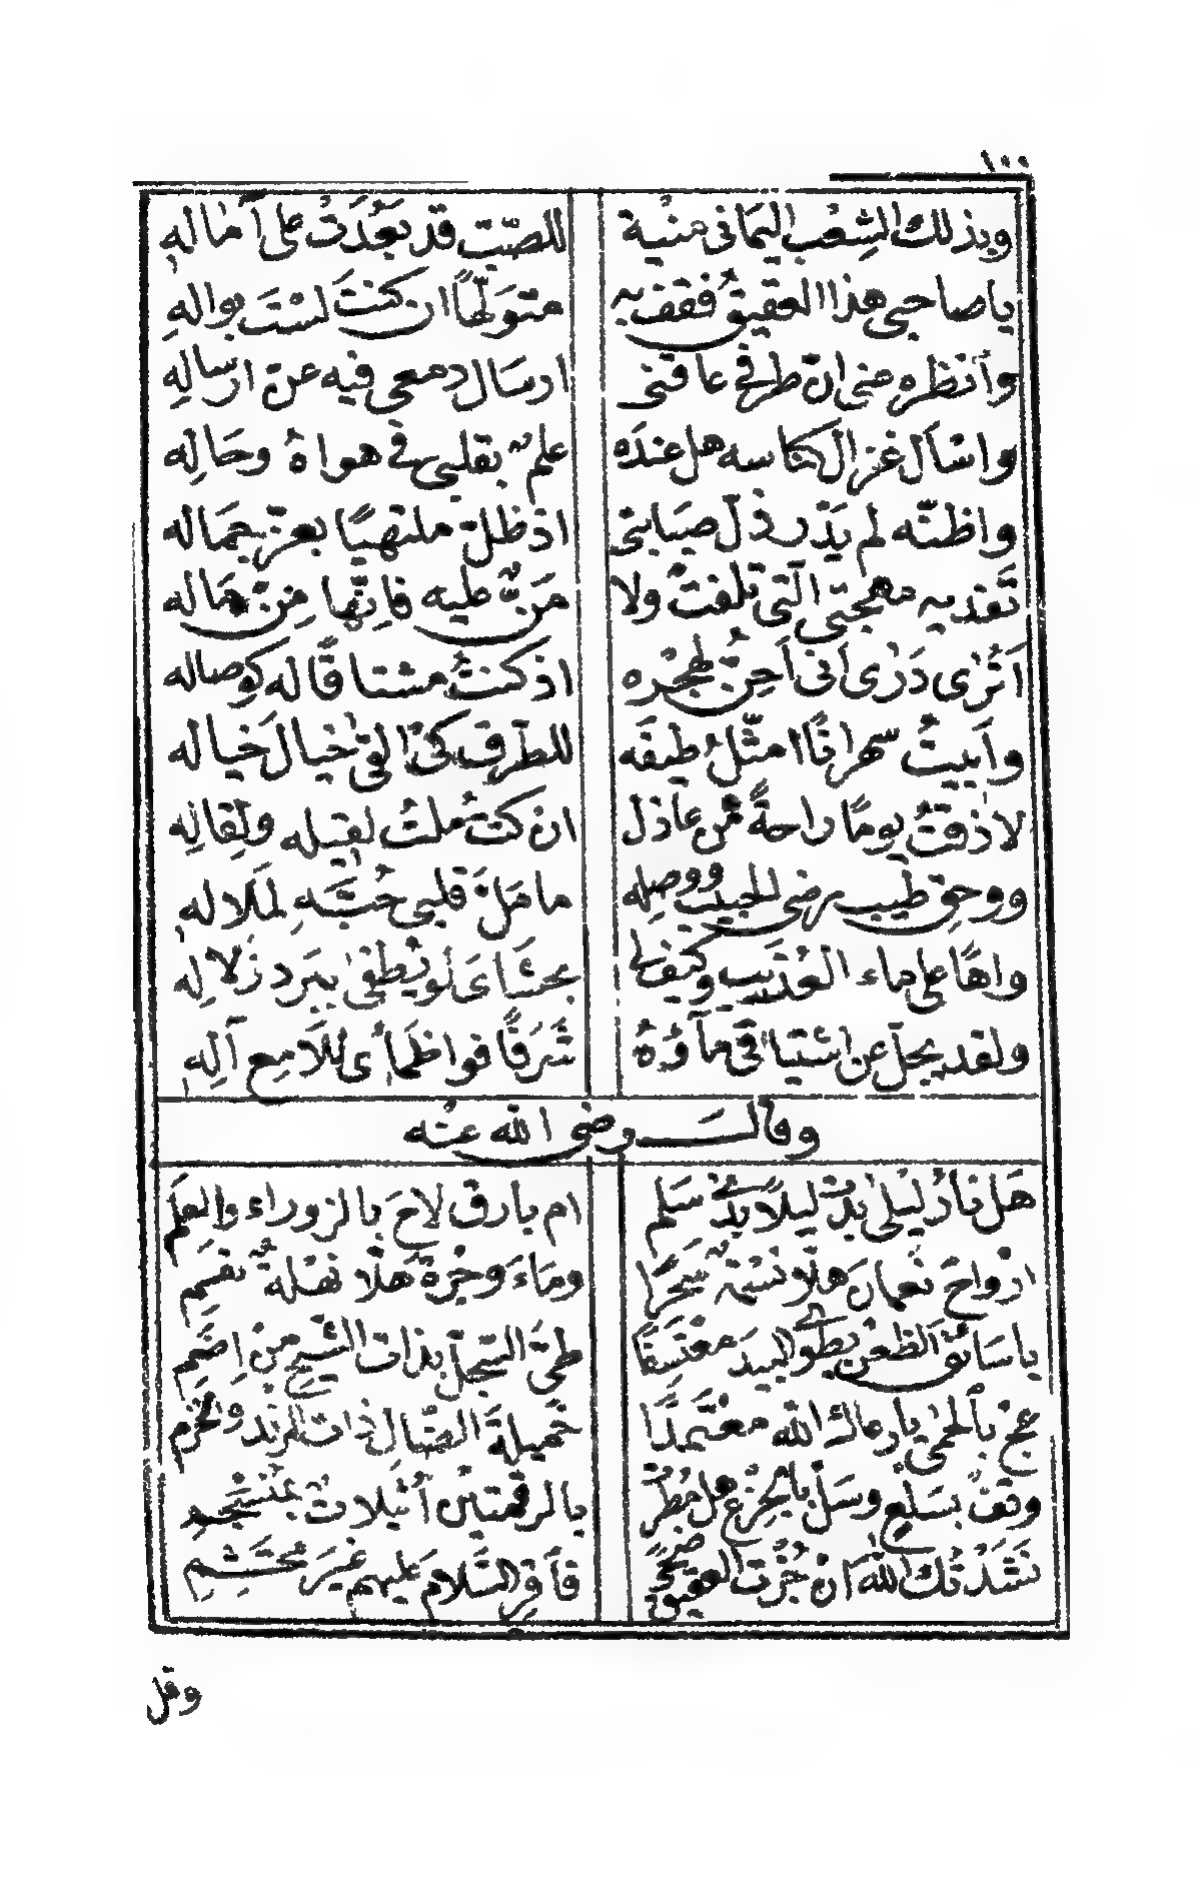 ١٠٠
وبذلك الشِعْب اليَمانى منيَة للصّبّ قد بَعُدَتْ على اَمٰالهِ
يا صاحبى هذا العقيقُ فقف بهِ متوَلّهًا ان كنتَ لسْتَ بوالهِ
وأنظرهُ عنى اِنّ طرفى عاقنى ارسَال دمعى فيه عن ارسالِهِ
واسْاَل غزال كناسه هل عندَه علمٌ بقلبى فى هواهُ وحَالِه
واظنّه لم يَدْر ذلّ صبَابتى اذ ظلّ ملتهيًا بعزّ جمَاله
تَفديهِ مهجتى الّتى تلفتْ ولا مَنٌّ عليه فاِنّها مِنْ مَاله
اَتُرٰى دَرٰى اَنى اَحِنّ لهجْره اذ كنتُ مشتاقًا له كوصاله
واَبيتُ سهرانًا امثّلُ طيفَه للطَرف كىْ القٰى خيالَ خياله
لا ذقتُ يومًا راحةً مّن عاذل ان كنتُ ملتُ لقيله ولِقالِه
ووحقّ طيب رضى الحبيب ووصلِه ما مَلَّ قلبى حُبَّه لِمَلالهِ
واهًا على ماء العُذيب وكيف لى بحشَاىَ لو يُطفٰى ببَرد زُلالِه
ولقد يجلّ عن اشتياقى مآؤهُ شَرَفًا فواظَمأى للَامِع آلِهِ
وقالــــ رضى الله عنه
هَل نارُ ليْلى بدَتْ ليلًا بذى سَلم ام بارقٌ لاحَ بالزوراء والعلَم
ارْواحَ نَعمانَ هلّا نسْمةٌ سَحَرًا ومَاءَ وجْرةَ هَلّا نهْلةٌ بفَمِ
يا سَائقَ الظعْن يَطوى البيدَ معْتَسِفًا طىَّ السّجلّ بذات الشّيحِ منْ اِضَمِ
عُجْ بالحمٰى يا رعاكَ الله معْتمدًا خَميلةَ الضّالِ ذات الرَّنْد والخُزمِ
وقفْ بسَلْعٍ وسَلْ بالجزْع هل مُطرَتْ بالرقمتين اُثَيلاتٌ بمنْسَجِمِ
نَشَدْتُكَ اللهَ اَنْ جُزْتَ العقيقَ ضحًى فاَقرِ السَّلامَ عليهم غيرَ محتَشِمِ
وقل